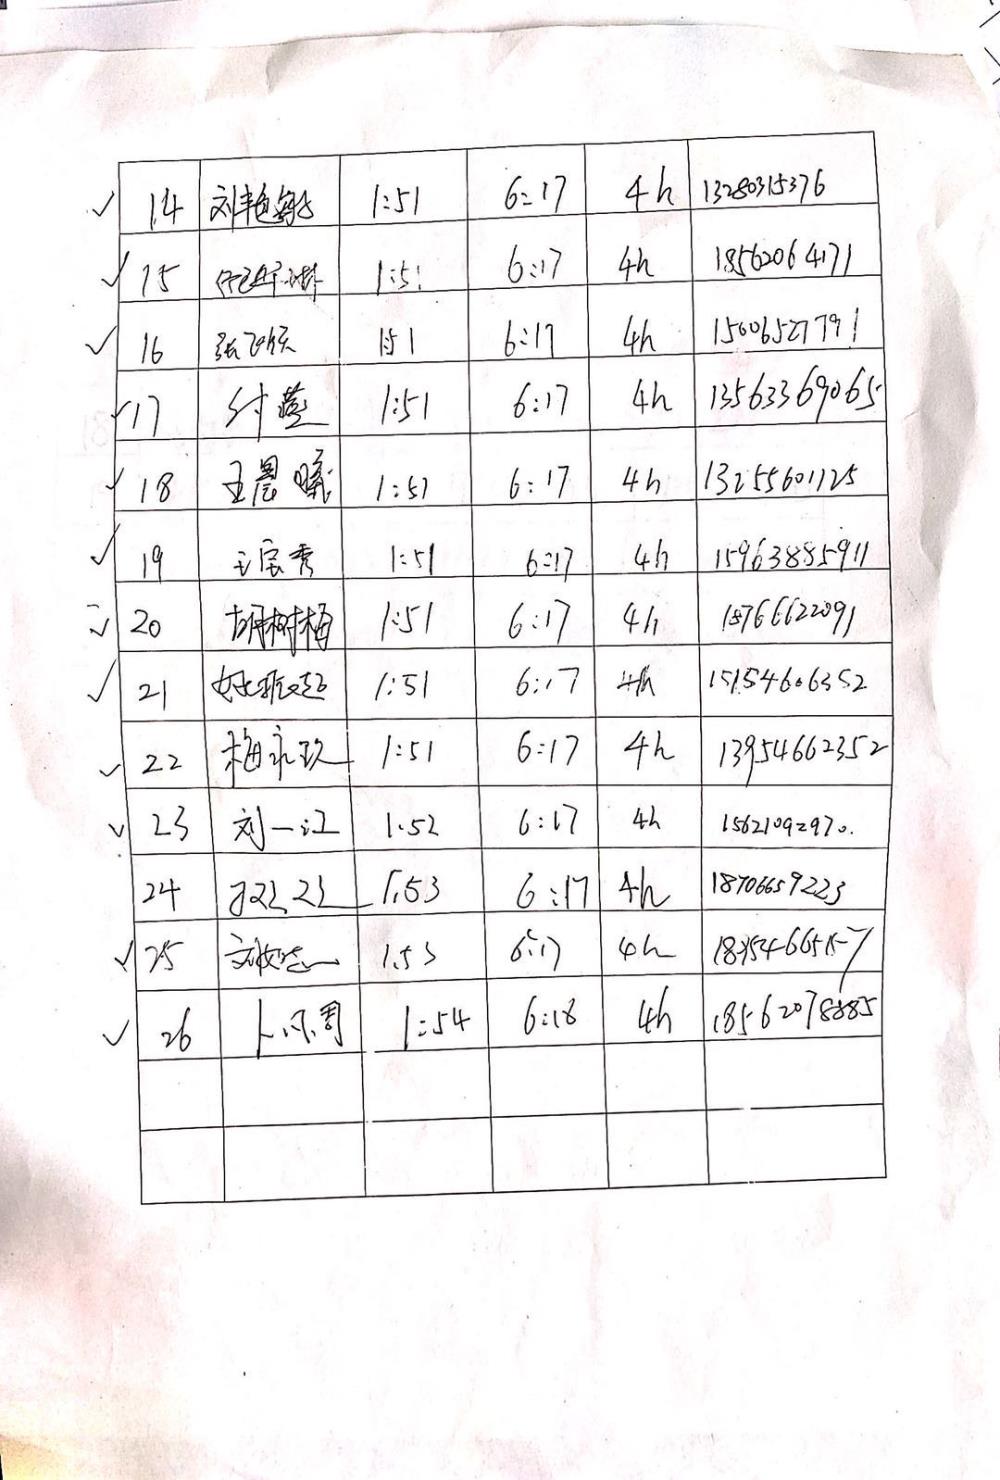 14 刘艳敏 1:51 6:17 4h 13280315376
15 1:51 6:17 4h 18562064171
16 张 1:51 6:17 4h 15006527791
17 付燕 1:51 6:17 4h 13563369065
18 王晨曦 1:51 6:17 4h 13255601125
19 王宝秀 1:51 6:17 4h 15963885911
20 胡树梅 1:51 6:17 4h 18766622091
21 1:51 6:17 4h 15154606352
22 梅永玖 1:51 6:17 4h 13954662352
23 刘一江 1:52 6:17 4h 15621092970.
24 1:53 6:17 4h 18706659223
25 1:53 6:17 4h
26 卜凤周 1:54 6:18 4h